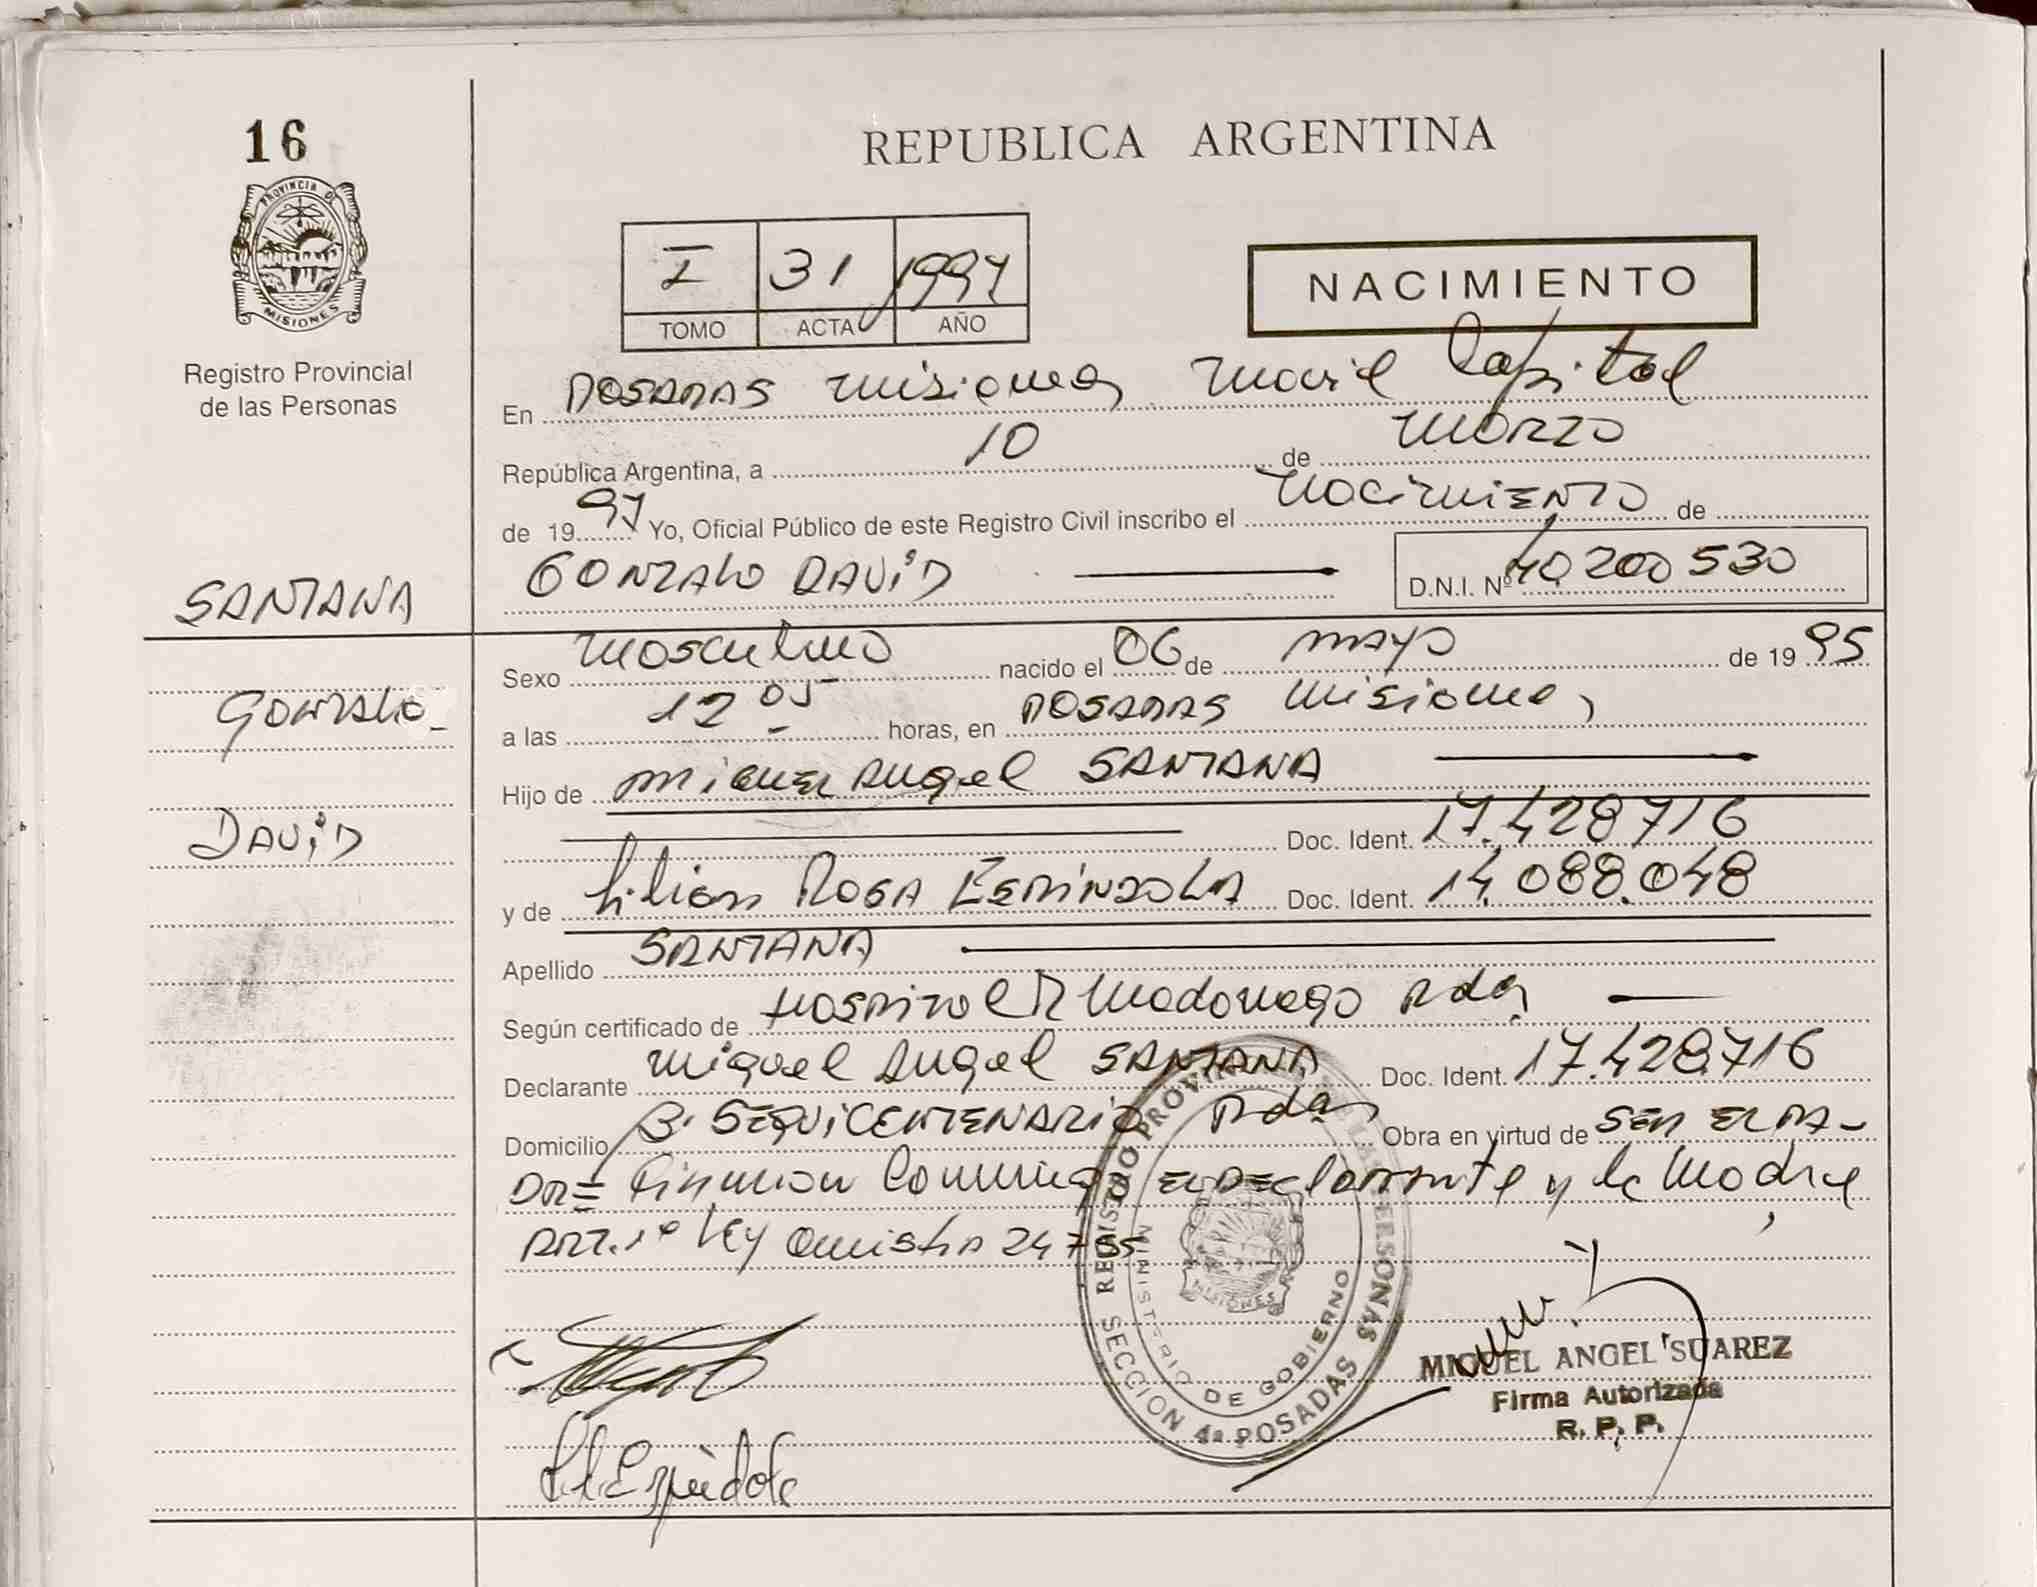 16
PROVINCIA DE
MISIONES
Registro Provincial
de las Personas
SANTANA
GONZALO
DAVID
REPUBLICA ARGENTINA
I 31 1997
TOMO ACTA AÑO
NACIMIENTO
En POSADAS Misiones Movil Capital
República Argentina, a 10 de Marzo
de 1997 Yo, Oficial Público de este Registro Civil inscribo el Nacimiento de
GONZALO DAVID D.N.I. Nº 40.200530
Sexo Masculino nacido el 06 de mayo de 1995
a las 12 05 horas, en POSADAS Misiones
Hijo de Miguel Angel SANTANA
Doc. Ident. 17.428716
y de Lilian ROSA ESPINDOLA Doc. Ident. 14.088.048
Apellido SANTANA
Según certificado de Hospital R Madariaga Pdas
Declarante Miguel Angel SANTANA Doc. Ident. 17.428.716
Domicilio B. SEQUICENTENARIO Pdas Obra en virtud de SER EL PA-
DRE Firman el DEclarante y la Madre
ART. 1º Ley Amistia 24755
REGISTRO PROVINCIAL DE LAS PERSONAS
SECCION 4a POSADAS
MINISTERIO DE GOBIERNO
MISIONES
MIGUEL ANGEL SUAREZ
Firma Autorizada
R. P. P.